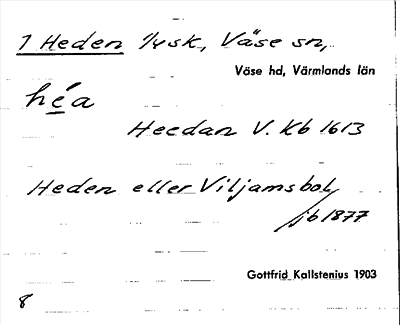 1 Heden 1/4 sk, Väse sn,
Väse hd, Värmlands län
héa
Heedan V. Kb 1613
Heden eller Viljamsbol
jb 1877
Gottfrid Kallstenius 1903
8